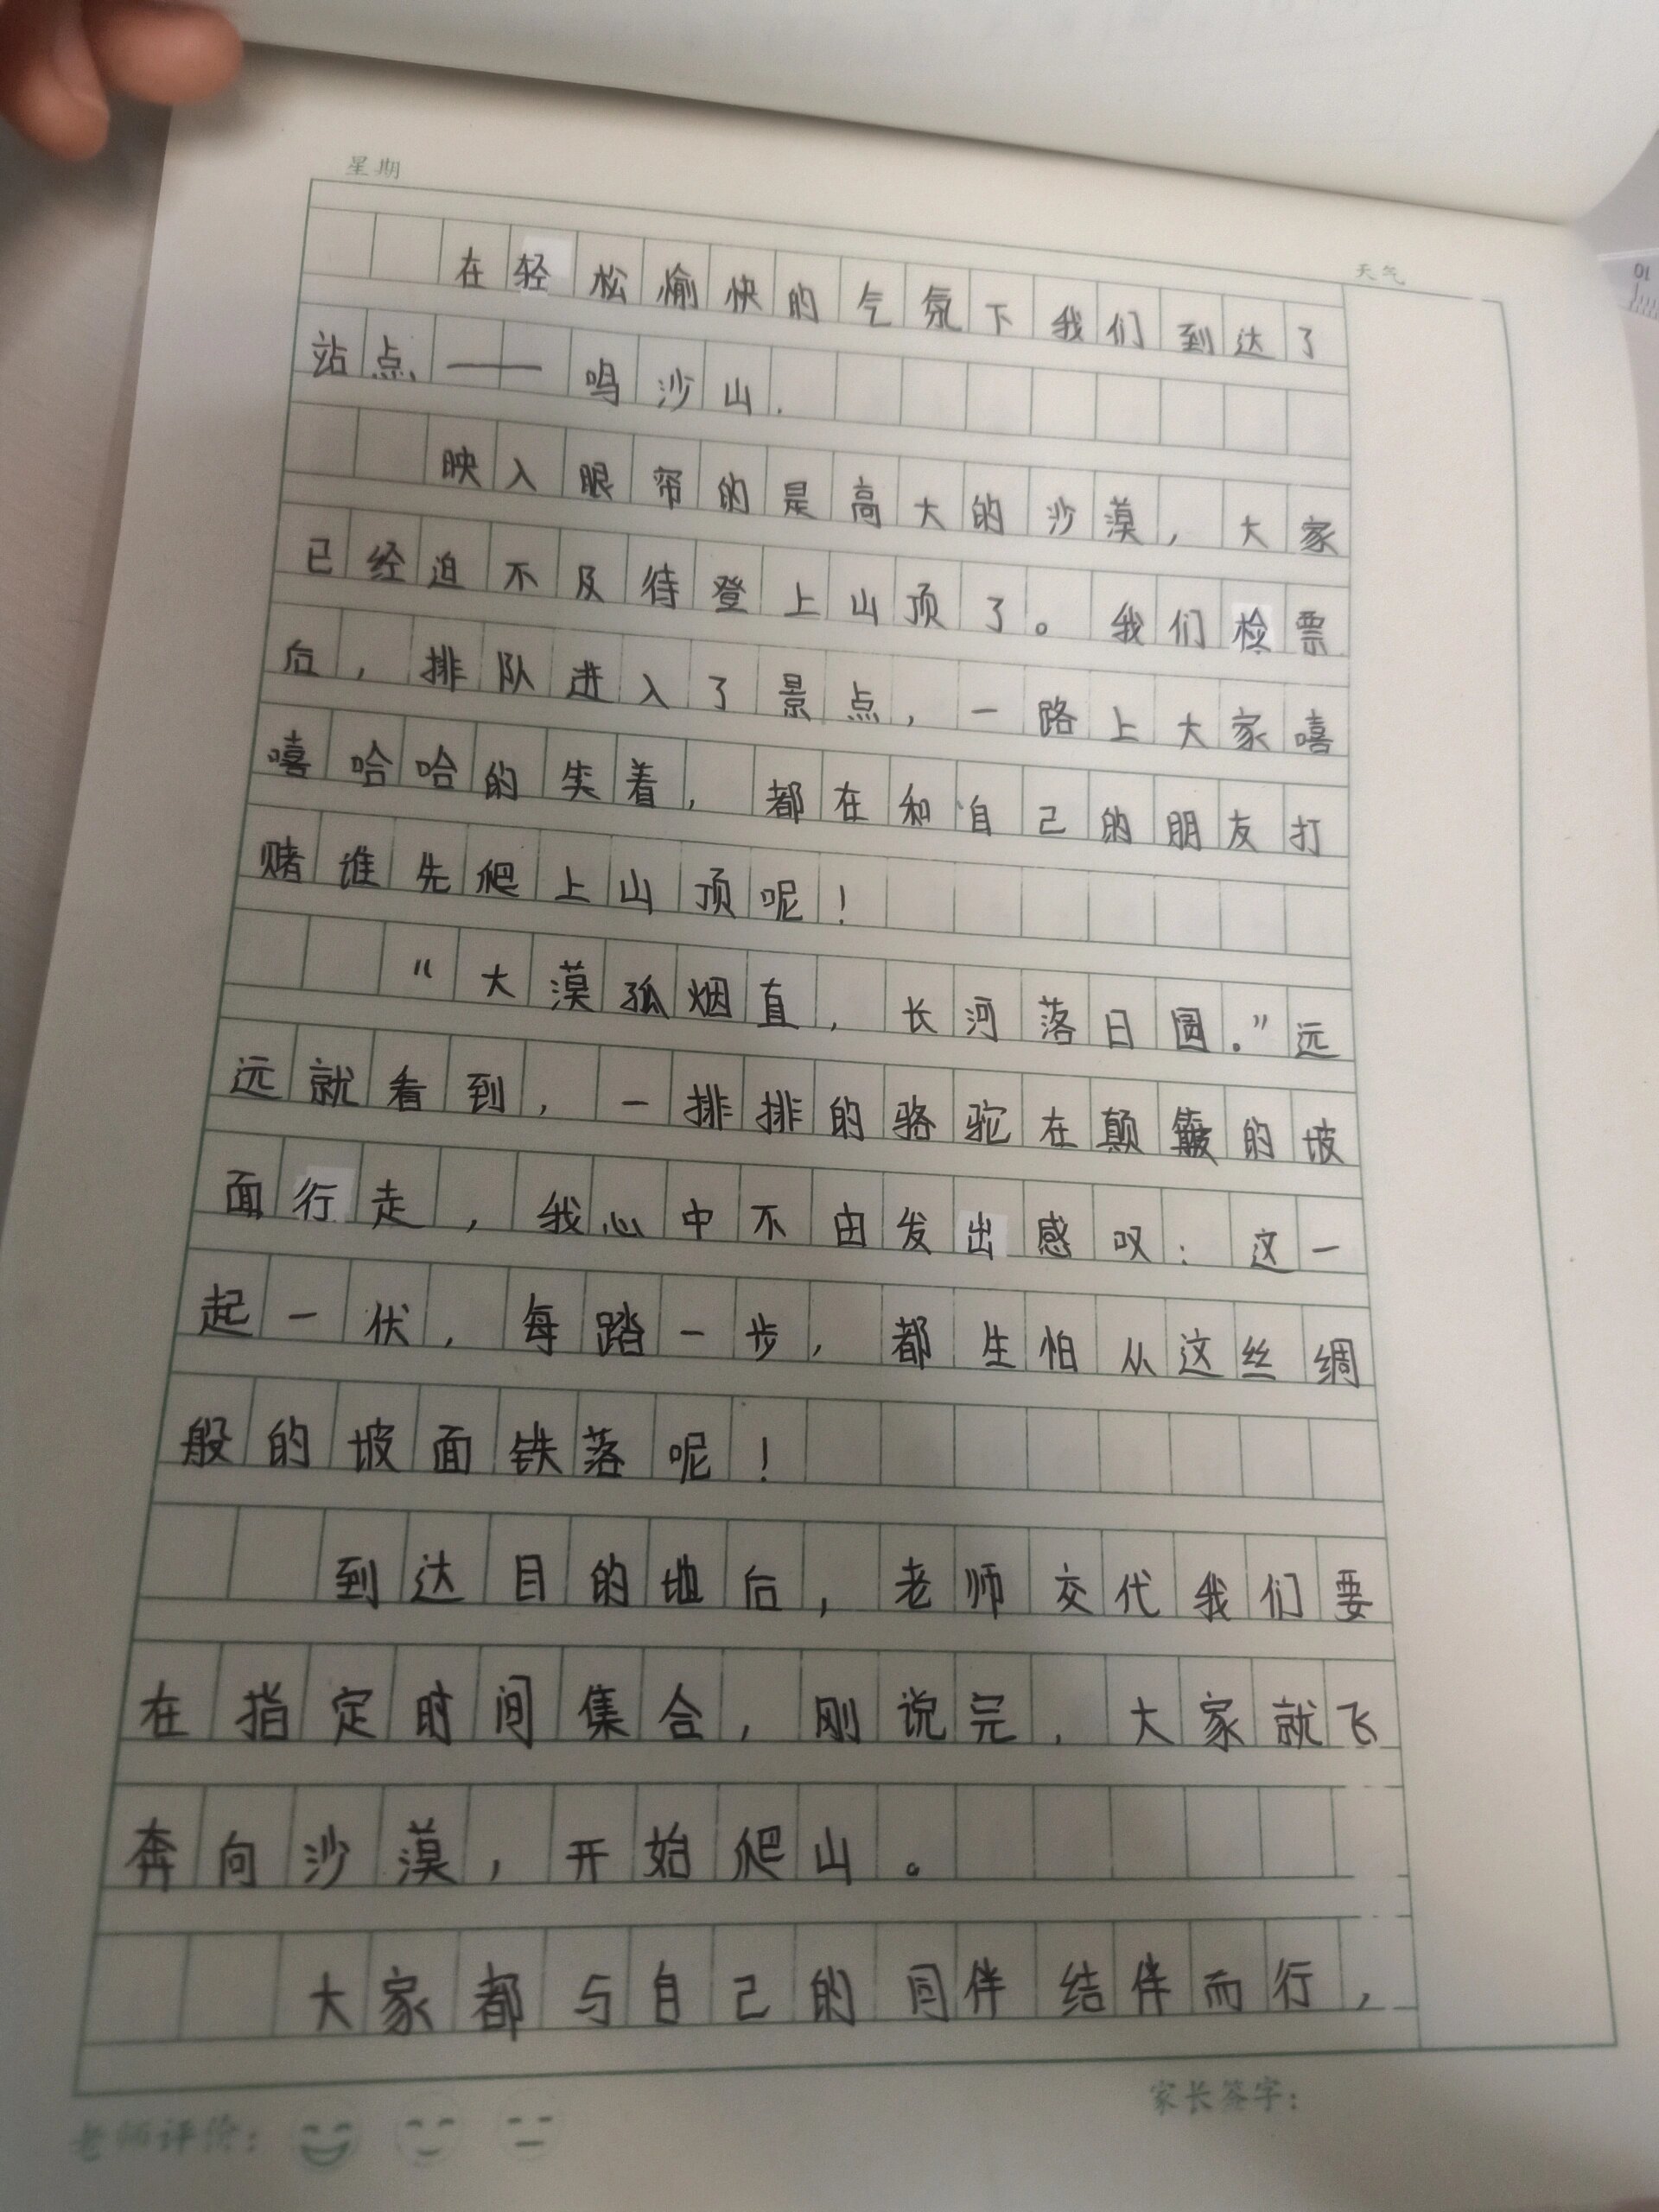 星期
天气
在轻松愉快的气氛下我们到达了
站点——鸣沙山.
映入眼帘的是高大的沙漠，大家
已经迫不及待登上山顶了。我们检票
后，排队进入了景点，一路上大家嘻
嘻哈哈的笑着，都在和自己的朋友打
赌谁先爬上山顶呢！
“大漠孤烟直，长河落日圆.”远
远就看到，一排排的骆驼在颠簸的坡
面行走，我心中不由发出感叹：这一
起一伏，每踏一步，都生怕从这丝绸
般的坡面铁落呢！
到达目的地后，老师交代我们要
在指定时间集合，刚说完，大家就飞
奔向沙漠，开始爬山。
大家都与自己的同伴结伴而行，
家长签字：
老师评价：
01